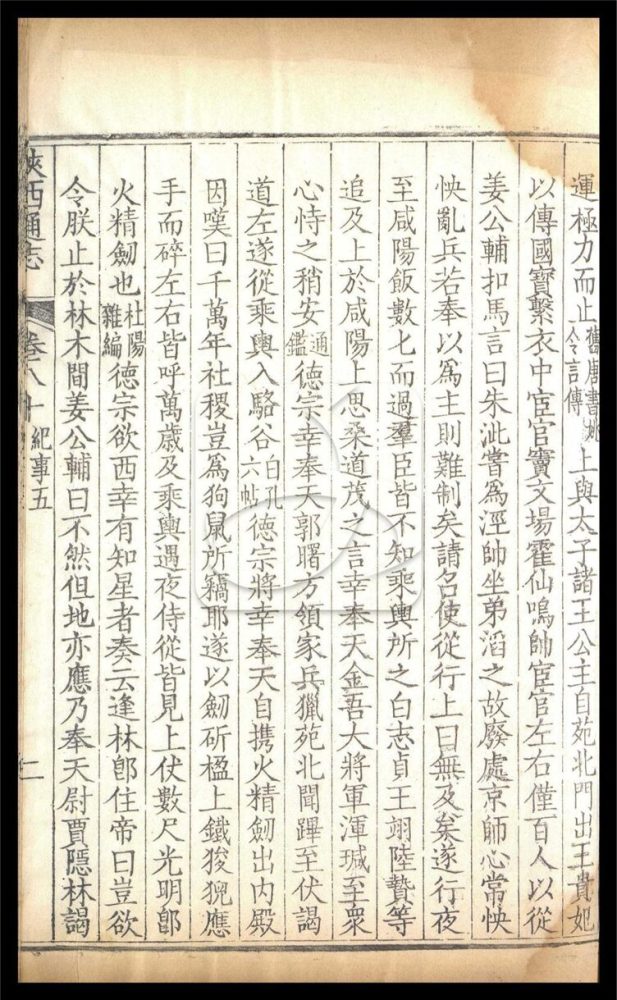 運極力而止舊唐書姚令言傳上與太子諸王公主自苑北門出王貴妃
以傳國寶繫衣中宦官竇文場霍仙鳴帥宦官左右僅百人以從
姜公輔扣馬言曰朱泚嘗爲涇帥坐弟滔之故廢處京師心常怏
怏亂兵若奉以爲主則難制矣請召使從行上曰無及矣遂行夜
至咸陽飯數匕而過羣臣皆不知乘輿所之白志貞王翃陸贄等
追及上於咸陽上思桑道茂之言幸奉天金吾大將軍渾瑊至衆
心恃之稍安通鑑德宗幸奉天郭曙方領家兵獵苑北聞蹕至伏謁
道左遂從乘輿入駱谷白孔六帖德宗將幸奉天自携火精劒出内殿
因嘆曰千萬年社稷豈爲狗鼠所竊耶遂以劒斫檻上鐵狻猊應
手而碎左右皆呼萬歲及乘輿遇夜侍從皆見上仗數尺光明卽
火精劒也杜陽雜編德宗欲西幸有知星者奏云逢林卽住帝曰豈欲
令朕止於林木間姜公輔曰不然但地亦應乃奉天尉賈隱林謁
陝西通志
卷八十 紀事五
二